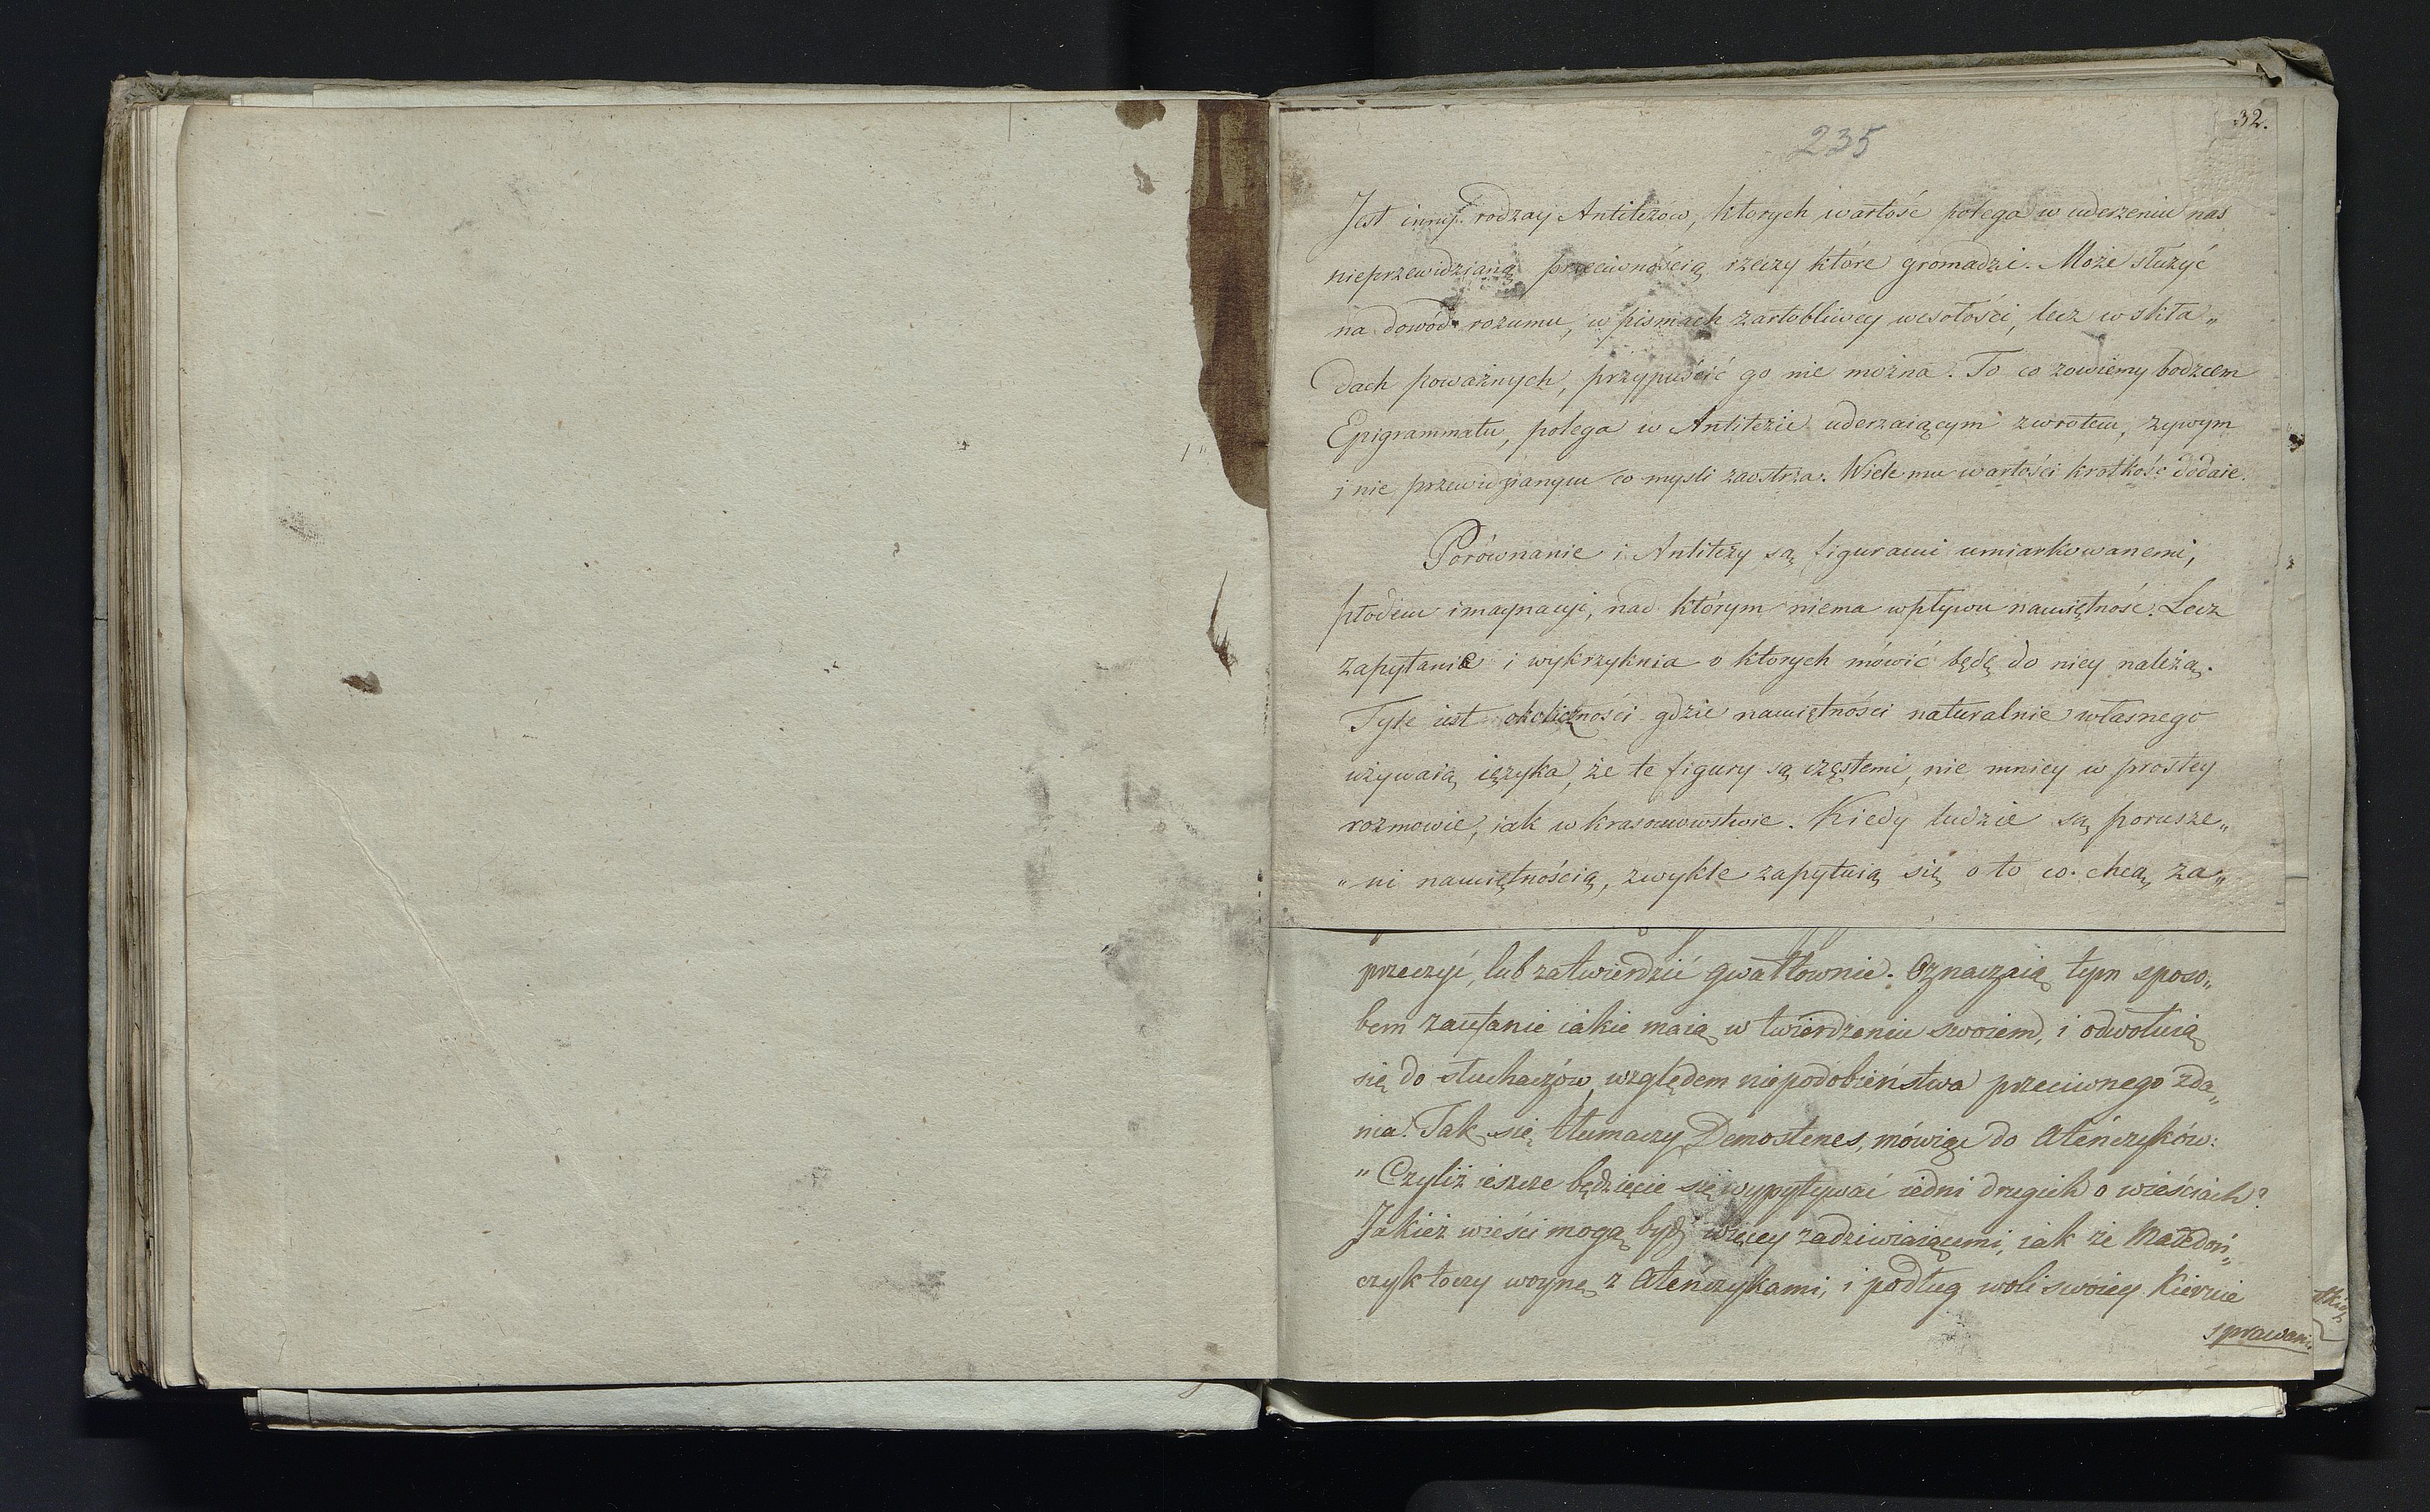 32.
235
Jest inny rodzay Antitezów, ktorych wartość polega w uderzeniu nas
nieprzewidzianą przeciwnością rzeczy które gromadzi. Może służyć
na dowód rozumu, w pismach żartobliwey wesołości, lecz w skła„
dach poważnych, przypuścić go nie można. To co zowiemy bodzcem
Epigrammatu, polega w Antitezie uderzaiącym zwrotem, żywym
i nie przewidzianym co mysli zaostrza. Wiele mu wartości krotkość dodaie.
Porównanie i Antitezy są figurami umiarkowanemi,
płodem imaynacyi, nad którym niema wpływu namiętność. Lecz
zapytanie i wykrzyknia o ktorych mówić będę do niey należą.
Tyle iest okoliczności gdzie namiętności naturalnie własnego
używaią ięzyka, że te figury są częstemi, nie mniey w prostey
rozmowie, iak w krasomowstwie. Kiedy ludzie są porusze„
„ni namiętnością, zwykle zapytuią się o to co chcą za„
przeczyć, lub zatwierdzić gwałtownie. Oznaczaią tym sposo„
bem zaufanie iakie maią w twierdzeniu swoiem, i odwołuią
się do słuchaczów, względem niepodobieństwa przeciwnego zda„
nia. Tak się tłumaczy Demostenes, mówiąc do Ateńczyków:
"Czyliż ieszcze będziecie się wypytywać iedni drugich o wieściach?
Jakież wieści mogą bydź więcey zadziwiaiącemi, iak że Macedoń„
czyk toczy woynę z Ateńczykami, i podług woli swoiey kieruie
sprawami